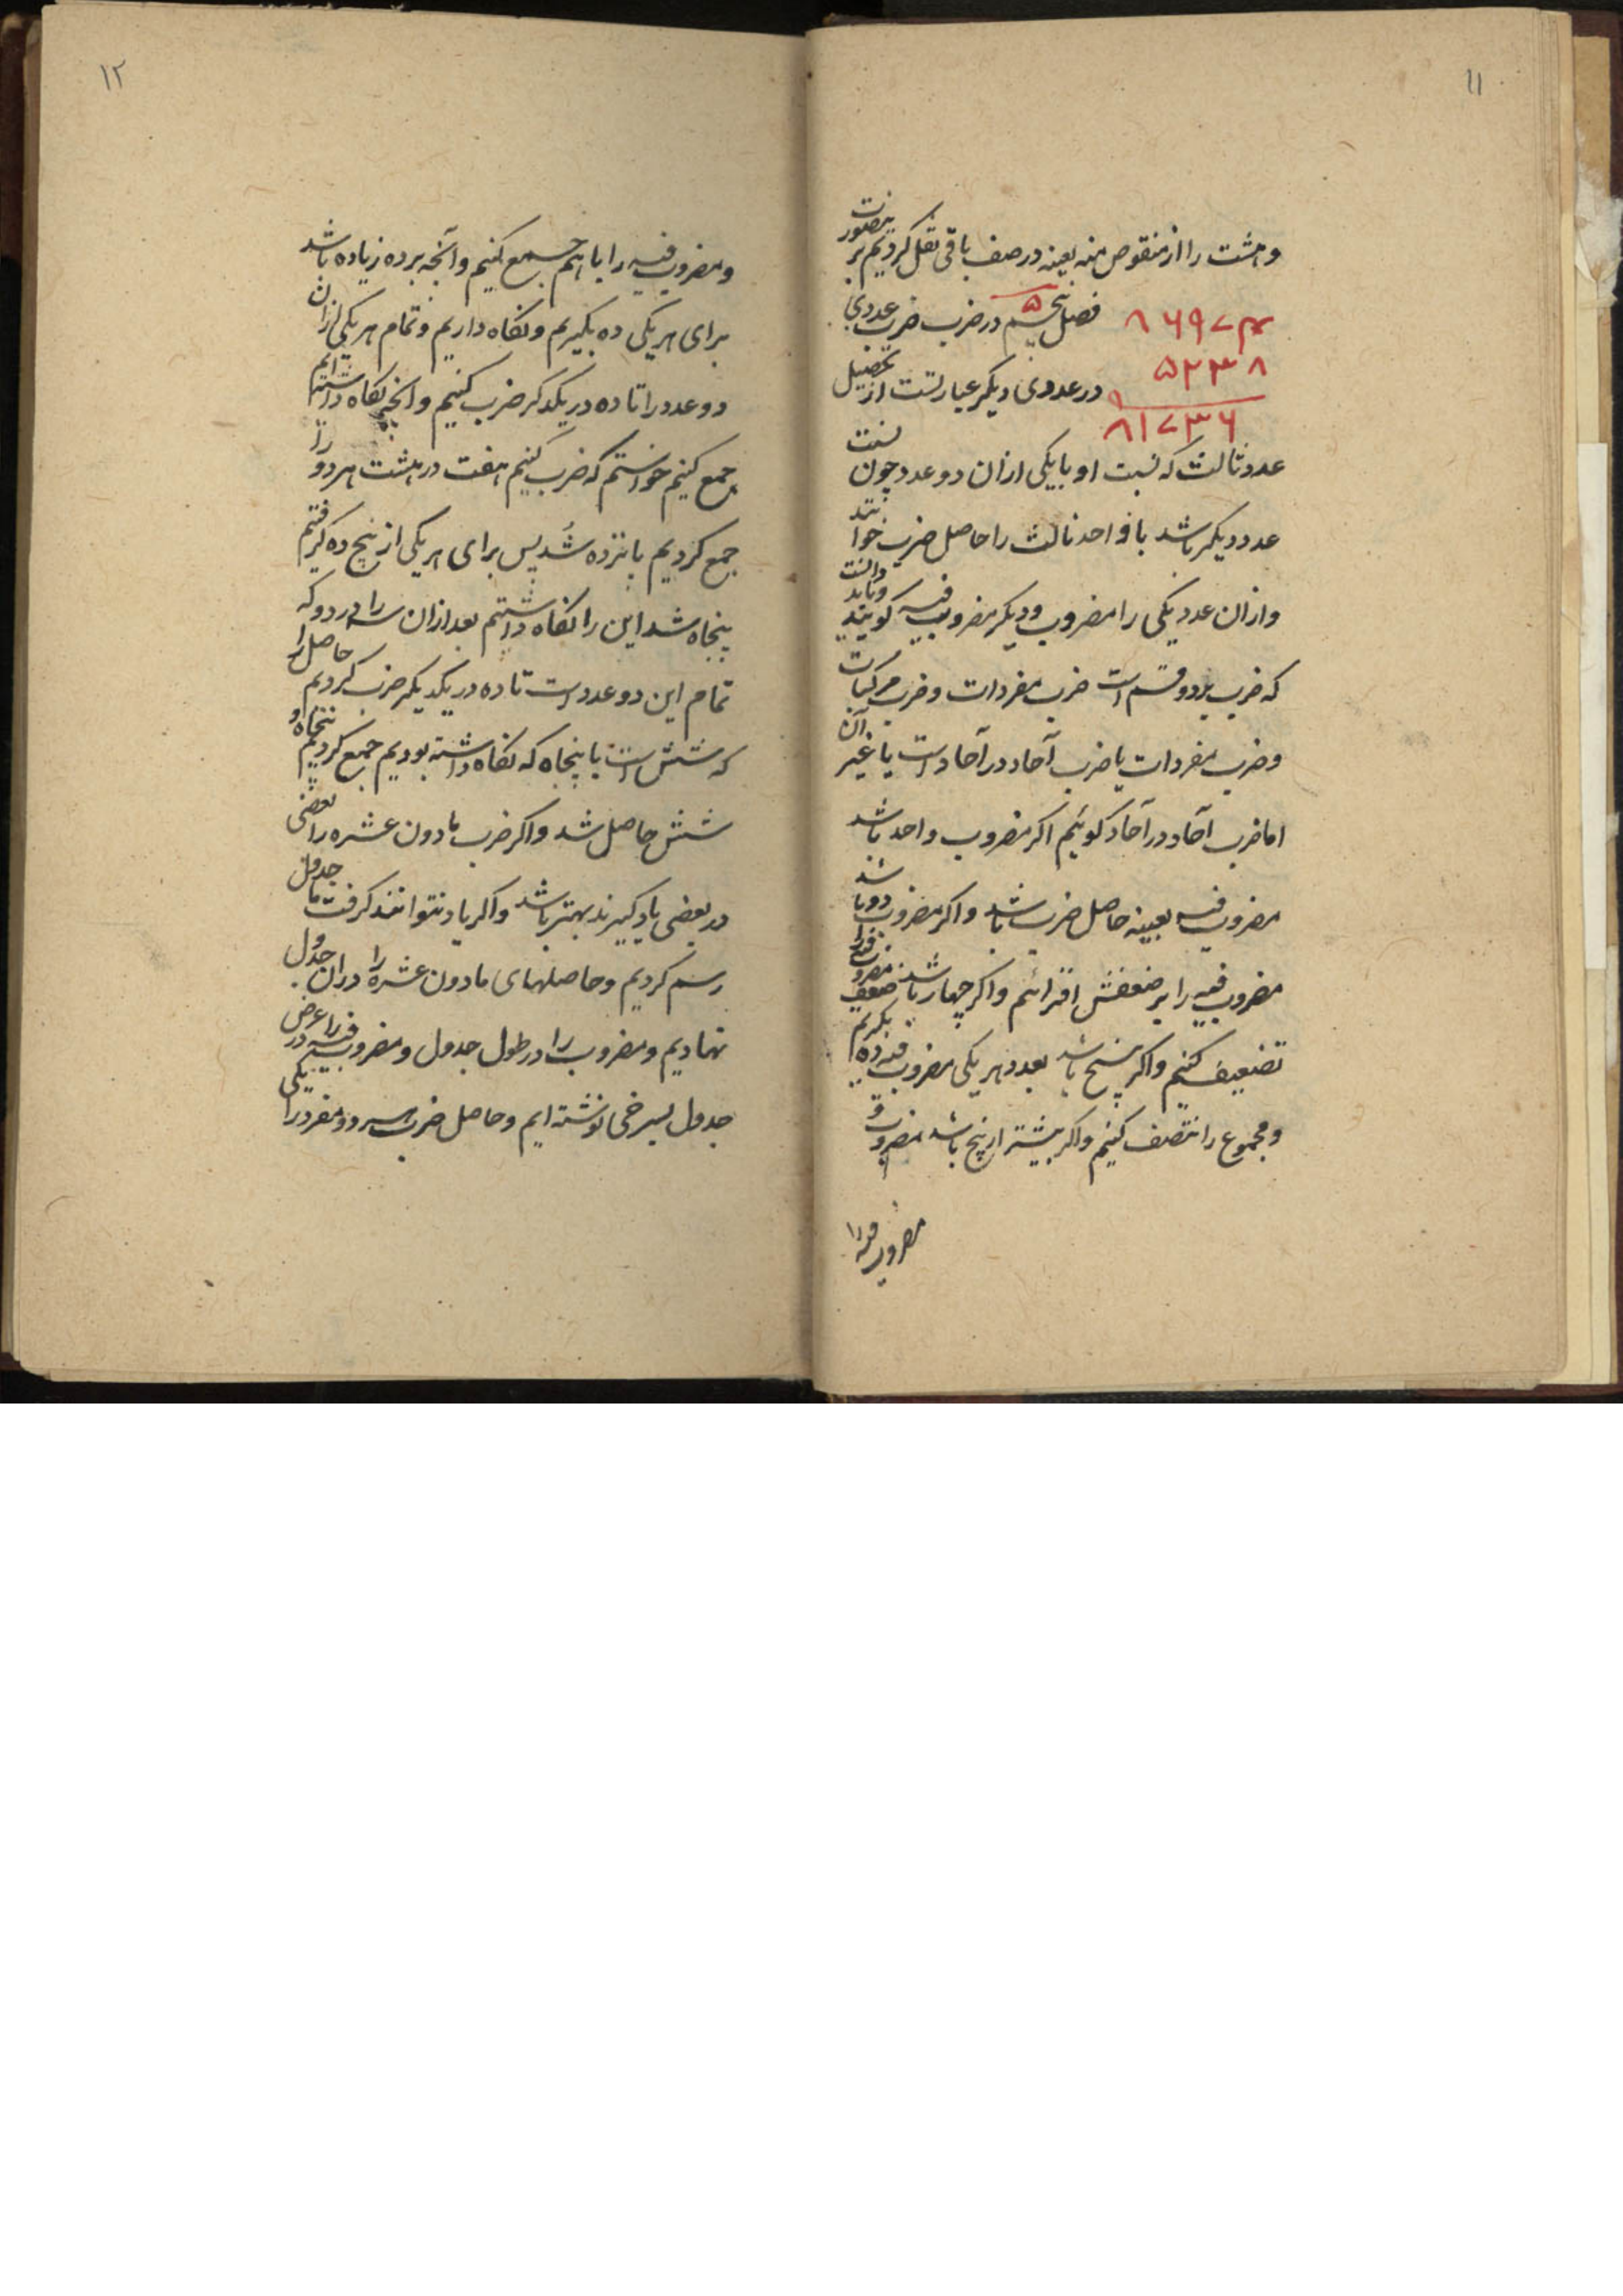 ۱۱
وهشت را از منقوص منه بعینه در صف باقی نقل کردیم بر ینصورت
۸۶۹۷۴
۵۲۳۸
۸۱۷۳۶
فصل پنجم در ضرب ضرب عددی
در عددی دیگر عبارتست از تحصیل
عدد ثالث که نسبت او با یکی ازان دو عدد چون نسبت
عدد دیگر باشد با واحد ثالث را حاصل ضرب خوانند
وازان عدد یکی را مضروب ودیگر مضروب فیه گویند وباید دانست
که ضرب بر دو قسم است ضرب مفردات وضرب مرکبات
وضرب مفردات یا ضرب آحاد در آحاد است یا غیر آن
اما ضرب آحاد در آحاد گوئیم اکر مضروب واحد باشد
مضروب فیه بعینه حاصل ضرب باشد واکر مضروب دو باشد
مضروب فیه را بر ضعفش افزائیم واکر چهار باشد ضعف مضروب فیه را
تضعیف کنیم واکر پنج باشد بعدد هر یکی مضروب فیه ده بکیریم
ومجموع را تنصیف کنیم واکر بیشتر از پنج باشد مضروب
مضروب فیه را
۱۲
ومضروب فیه را با هم جمع کنیم وآنچه بر ده زیاده باشد
برای هر یکی ده بکیریم ونکاه داریم وتمام هر یکی ازان
دو عدد را تا ده در یکدکر ضرب کنیم وانچه نکاه داشته ایم
جمع کنیم خواستیم که ضرب کنیم هفت در هشت هر دو را
جمع کردیم پانزده شد پس برای هر یکی از پنج ده کرفتیم
پنجاه شد این را نکاه داشتیم بعد ازان سه را در دو که
تمام این دو عدد است تا ده در یکدیکر ضرب کردیم حاصل را
که شش است با پنجاه که نکاه داشته بودیم جمع کردیم پنجاه و
شش حاصل شد واکر ضرب مادون عشره را بعضی
در بعضی یاد کیرند بهتر باشد واکر یاد نتوانند کرفت ما جدول
رسم کردیم وحاصلهای مادون عشره را دران جدول
نهادیم ومضروب را در طول جدول ومضروب فیه را در عرض
جدول بسرخی نوشته ایم وحاصل ضرب هر دو مفرد را یکی